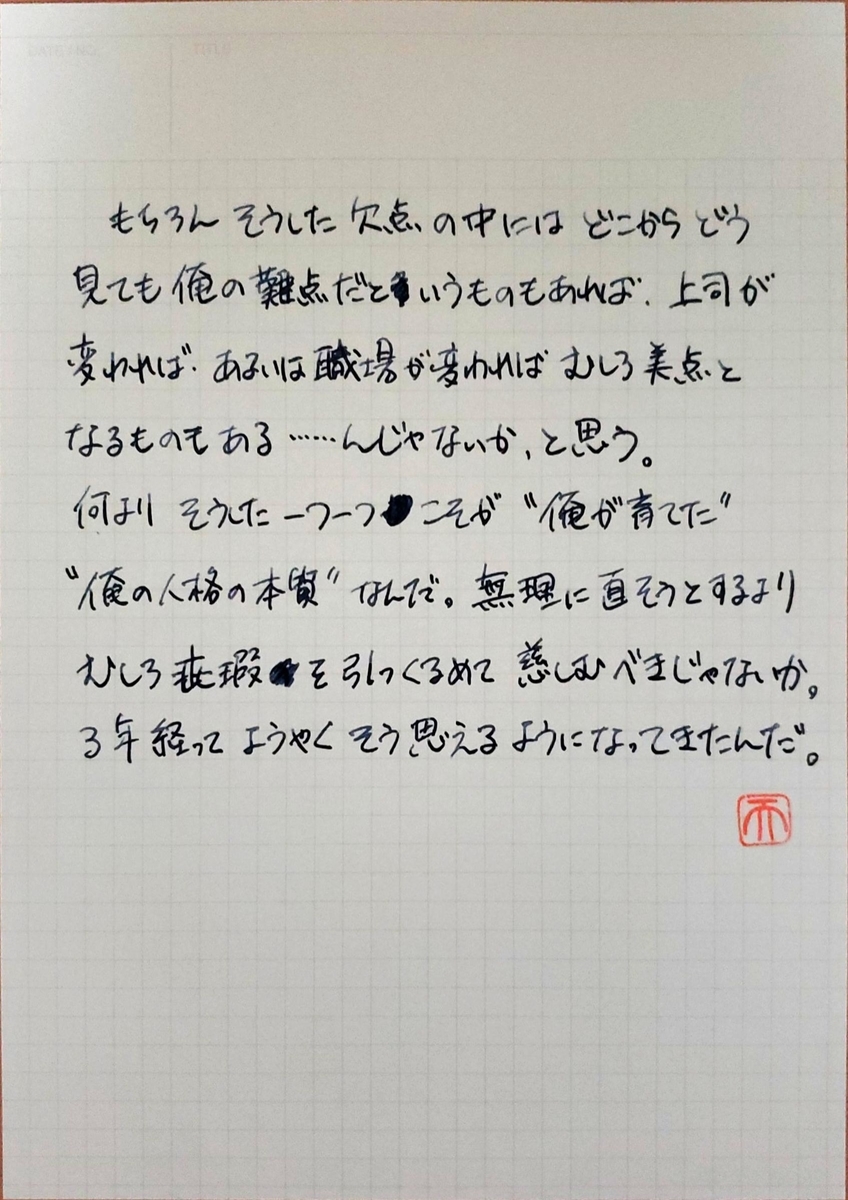 もちろん そうした 欠点の中には どこから どう
見ても 俺の難点だというものもあれば、上司が
変われば、あるいは職場が変われば むしろ美点と
なるものもある……んじゃないか、と思う。
何より そうした一つ一つこそが “俺が育てた”
“俺の人格の本質” なんだ。無理に直そうとするより
むしろ疵瑕を引っくるめて 慈しむべきじゃないか。
3年経って ようやく そう思えるようになってきたんだ。